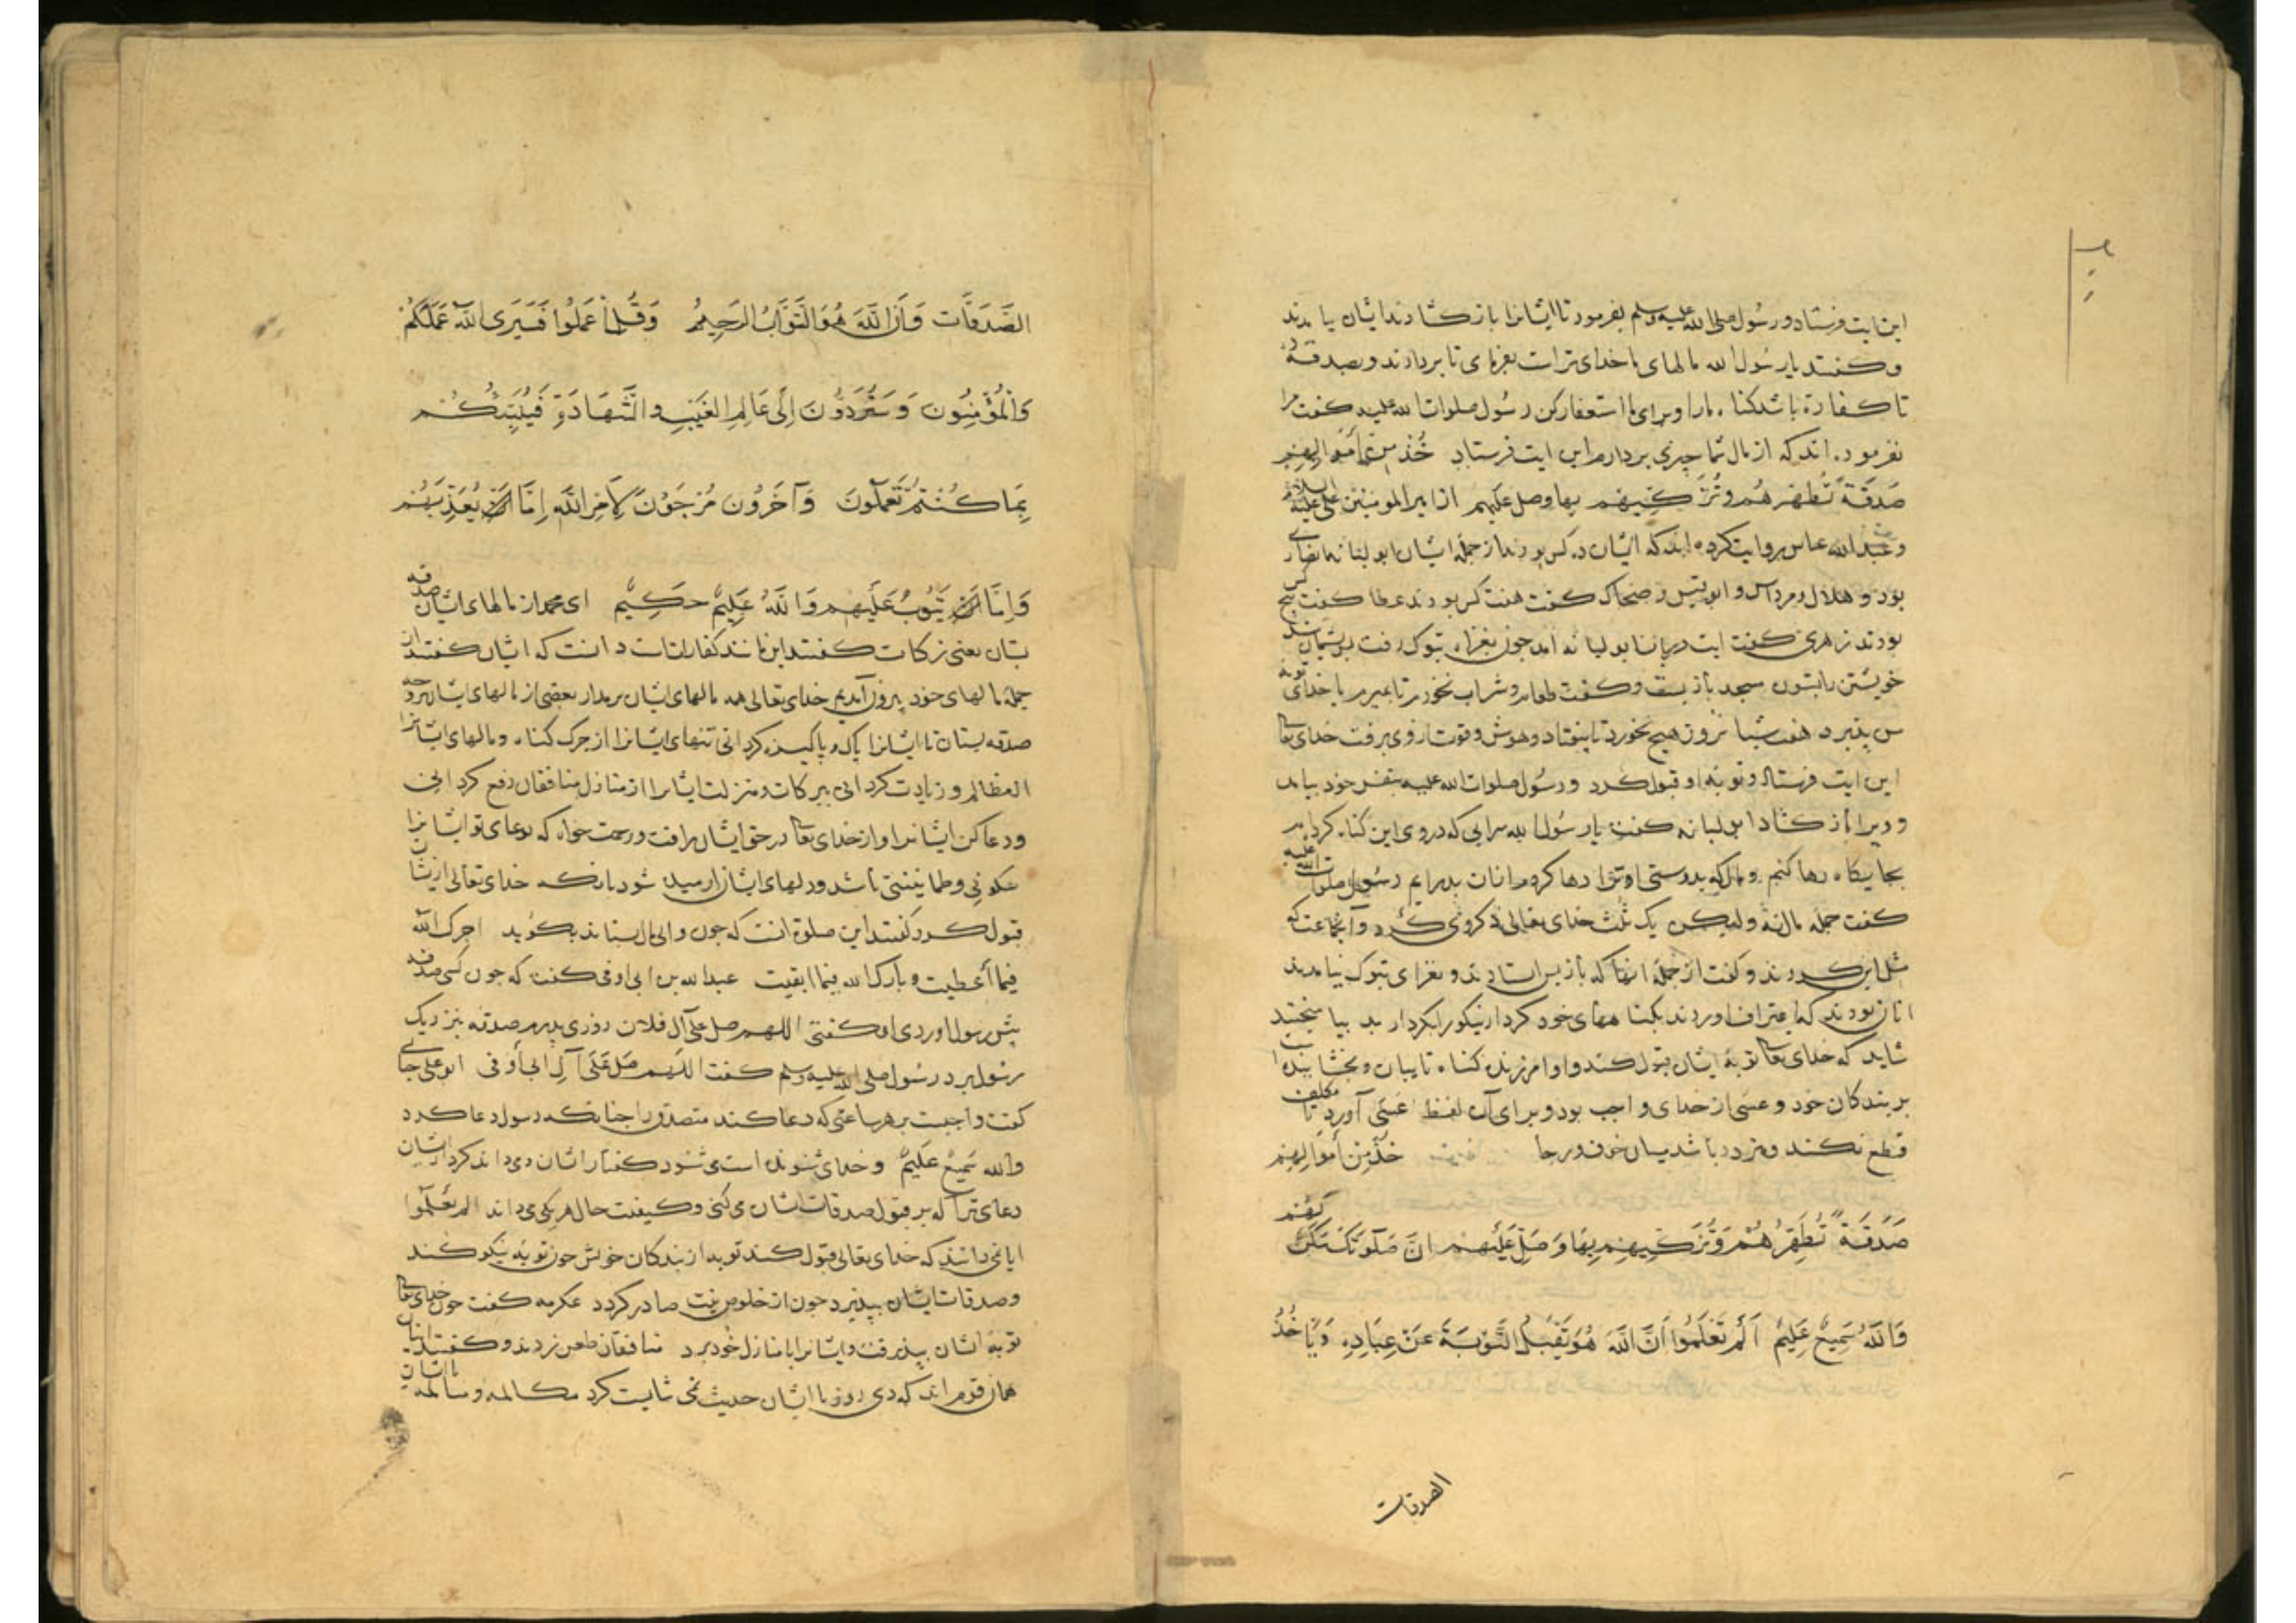 این ایت فرستاد و رسُول صلی الله علیه وسلم بفرمود تا ایشانرا باز کشادند ایشان بامدند
و کفتند یا رسُول الله مالهای ما خدای تراست بفرمای تا بردارند و بصدقه
تا کفارة باشد کناه مارا و برای ما استغفار کن رسُول صلوات الله علیه کفت مرا
نفرموده اند که از مال شما چیزی بردارم این ایت فرستاد خُذ من أموالهم
صَدَقَةً تُطهرهُم وتُزَكّيهم بها وصل عليهم از امیر المومنین علی علیه السلام
و عبد الله عباس روایت کرده اند که ایشان ده کس بودند از جمله ایشان ابو لبابه انصاری
بود و هلال و مرداس و ابو قیس و ضحاک کفت هفت کس بودند عطا کفت پنج کس
بودند زهری کفت ایت در شان ابو لبابه امد چون بغزاه تبوک نرفت پشیمان شد
خویشتن را بستون مسجد باز بست و کفت طعام و شراب نخورم تا بمیرم یا خدای توبه
من بپذیرد هفت شبانروز هیچ نخورد تا بیفتاد و هوش و قوت از وی برفت خدای تعالی
این ایت فرستاد و توبه او قبول کرد و رسُول صلوات الله علیه بنفس خود بیامد
و ویرا باز کشاد ابو لبابه کفت یا رسُول الله سرایی که در وی این کناه کرده ام
بجایکاه رها کنم و مال که بدوستی او ترا رها کردم ازان بدر ایم رسول صلوات الله علیه
کفت جمله مال نه ولیکن یک ثلث خدای تعالی ذکر وی کرد و آنجماعت که
مثل این کردند و کفت از جمله انها که باز پس استادند و بغزای تبوک نیامدند
انان بودند که اعتراف اوردند بکناههای خود کردار نیکو را بکردار بد بیامیختند
شاید که خدای تعالی توبه ایشان قبول کند و او امرزنده کناه تایبان و بخشاینده است
بر بندکان خود و عسی از خدای واجب بود و برای آن لفظ عَسَی آورد تا مکلف
قطع نکند و متردد باشد میان خوف و رجا خُذْ مِنْ أَمْوَالِهِمْ
صَدَقَةً تُطَهِّرُهُمْ وَتُزَكِّيهِمْ بِهَا وَصَلِّ عَلَيْهِمْ انَّ صَلَوتَكَ سَكَنٌ لَهُمْ
وَاللَّهُ سَمِيعٌ عَلِيمٌ أَلَمْ تَعْلَمُوا أَنَّ اللَّهَ هُوَ يَقْبَلُ التَّوْبَةَ عَنْ عِبَادِهِ وَيَأْخُذُ
الصدقات
الصَّدَقَاتِ وَأَنَّ اللَّهَ هُوَ التَّوَّابُ الرَّحِيمُ وَقُلِ اعْمَلُوا فَسَيَرَى اللَّهُ عَمَلَكُمْ
وَالْمُؤْمِنُونَ وَسَتُرَدُّونَ إِلَى عَالِمِ الْغَيْبِ وَالشَّهَادَةِ فَيُنَبِّئُكُمْ
بِمَا كُنْتُمْ تَعْمَلُونَ وَآخَرُونَ مُرْجَوْنَ لِأَمْرِ اللَّهِ إِمَّا يُعَذِّبَهُمْ
وَإِمَّا يَتُوبُ عَلَيْهِمْ وَاللَّهُ عَلِيمٌ حَكِيمٌ ای محمد از مالهای ایشان صدقه
بستان یعنی زکات کفتند این مانند کفاراتست دانست که ایشان کفتند از
جمله مالهای خود بیرون آمدیم خدای تعالی همه مالهای ایشان برمدار بعضی از مالهای ایشان بر وجه
صدقه بستان تا ایشانرا پاک و پاکیزه کردانی تنهای ایشانرا از چرک کناه و مالهای ایشانرا
المظالم و زیادت کردانی ببرکات و منزلت ایشانرا از منازل منافقان رفع کردانی
و دعا کن ایشانرا و از خدای تعالی در حق ایشان رافت و رحمت خواه که دعای تو ایشانرا
سکونی و طمانینتی باشد و دلهای ایشان ارمیده شود بانکه خدای تعالی از یشان
قبول کرد کفتند این صلوة انست که چون والی مال بستاند بکوید اجرک الله
فیما أعطیت و بارک الله فیما ابقیت عبد الله بن ابی اوفی کفت که چون کسی صدقه
پیش رسول اوردی او کفتی اللهم صل علی آل فلان روزی پدرم صدقه بنزدیک
رسول برد رسُول صلی الله علیه وسلم کفت اللهم صَل عَلَی آل ابی أوفی ابو علی جبایی
کفت واجبست بر هر ساعی که دعا کند متصدق را چنانکه رسول دعا کرد
والله سَمیعٌ عَلیمٌ و خدای شنونده است می شنود کفتار ایشان می داند کردار ایشان
دعای ترا که بر قبول صدقات ایشان می کنی و کیفیت حال هر یکی می داند الم تَعْلَمُوا
ایا نمی دانند که خدای تعالی قبول کند توبه از بندکان خویش چون توبه نیکو کنند
و صدقات ایشان بپذیرد چون از خلوص نیت صادر کردد عکرمه کفت چون خدای تعالی
توبه ایشان بپذیرفت و ایشانرا با منازل خود برد منافقان طعن زدند و کفتند اینان
همان قوم اند که دی روز با ایشان حدیث نمی شایست کرد مکالمه و سالمه با ایشان